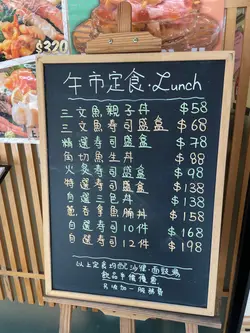 $320
午市定食·Lunch
三文魚親子丼 $58
三文魚壽司盛盒 $68
精選壽司盛盒 $78
角切魚生丼 $88
火炙壽司盛盒 $98
特選壽司盛盒 $138
自選三色丼 $138
蔥吞拿魚腩丼 $158
自選壽司10件 $168
自選壽司12件 $198
以上定食均配沙律·麵豉湯
飲品半價優惠
另收加一服務費